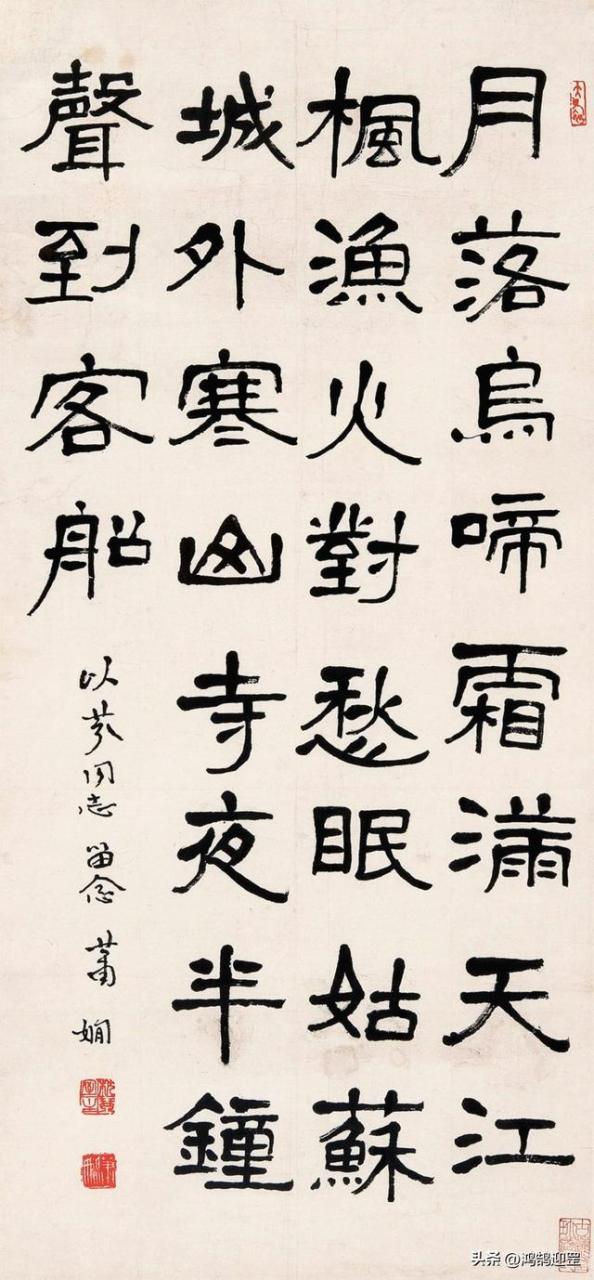 月落烏啼霜滿天江
楓漁火對愁眠姑蘇
城外寒山寺夜半鐘
聲到客船
以芬同志留念 蕭嫻
头条 @鸿鹄迎罡